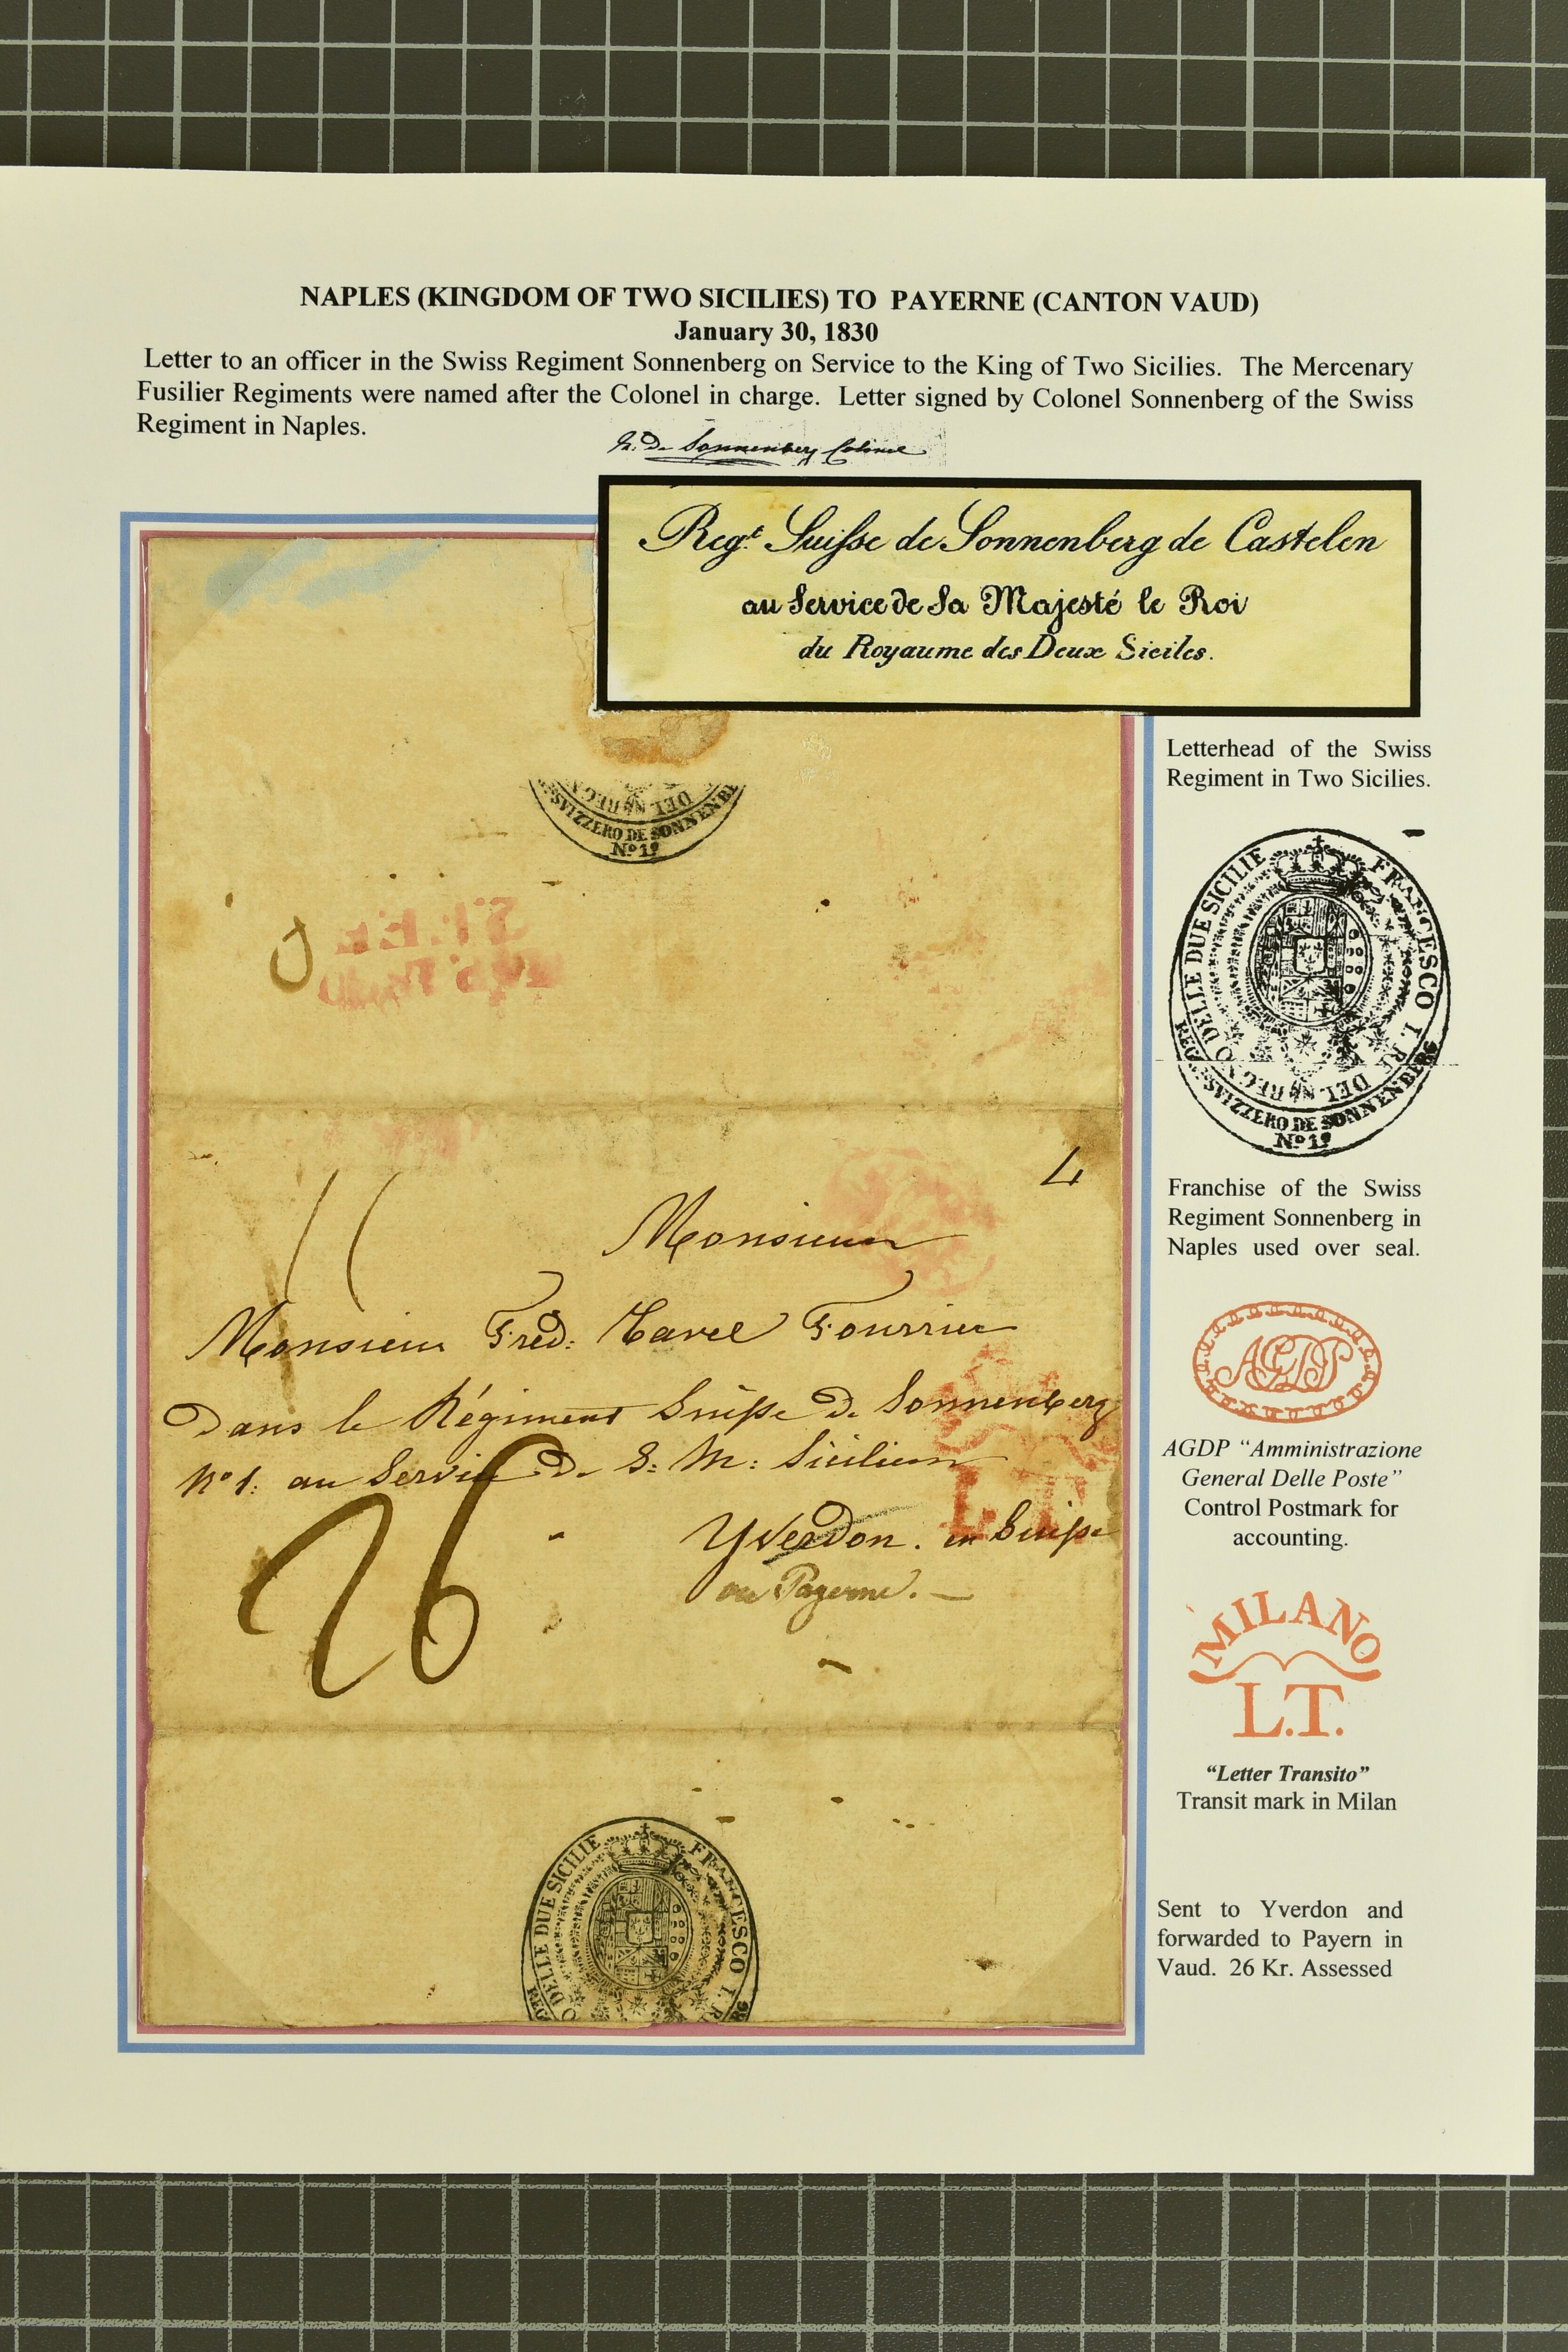 NAPLES (KINGDOM OF TWO SICILIES) TO PAYERNE (CANTON VAUD)
January 30, 1830
Letter to an officer in the Swiss Regiment Sonnenberg on Service to the King of Two Sicilies. The Mercenary
Fusilier Regiments were named after the Colonel in charge. Letter signed by Colonel Sonnenberg of the Swiss
Regiment in Naples.
de Sonnenberg Colonel
Regt. Suisse de Sonnenberg de Castelen
au Service de Sa Majesté le Roi
du Royaume des Deux Siciles.
Letterhead of the Swiss
Regiment in Two Sicilies.
DEL REG
SVIZZERO DE SONNENBE
No. 1o
FRANCESCO I. RE DEL REGNO DELLE DUE SICILIE
REGto SVIZZERO DE SONNENBERG
No. 1o
4
Monsieur
Monsieur Fréd: Tavel Fourrier
Dans le Régiment Suisse de Sonnenberg
No 1: au Service De S: M: Sicilienne
Yverdon. en Suisse
ou Payerne.
26
L.T.
DELLE DUE SICILIE FRANCESCO I. R
Franchise of the Swiss
Regiment Sonnenberg in
Naples used over seal.
AGDP
AGDP “Amministrazione
General Delle Poste”
Control Postmark for
accounting.
MILANO
L.T.
“Letter Transito”
Transit mark in Milan
Sent to Yverdon and
forwarded to Payern in
Vaud. 26 Kr. Assessed